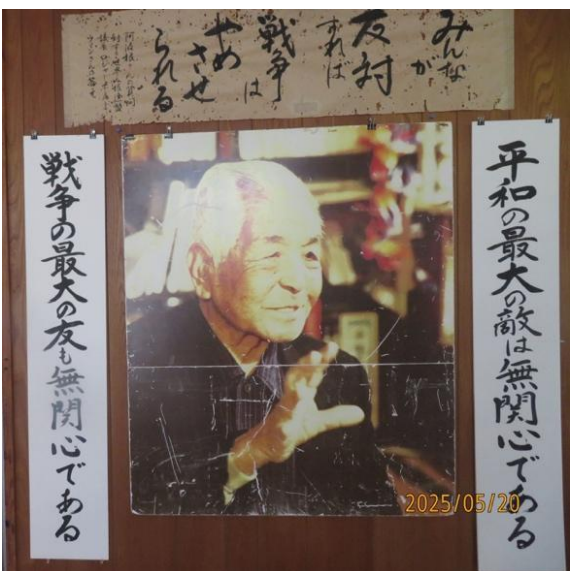 みんな
が
反対
すれば
戦争
は
やめ
させ
られる
平和の最大の敵は無関心である
戦争の最大の友も無関心である
2025/05/20